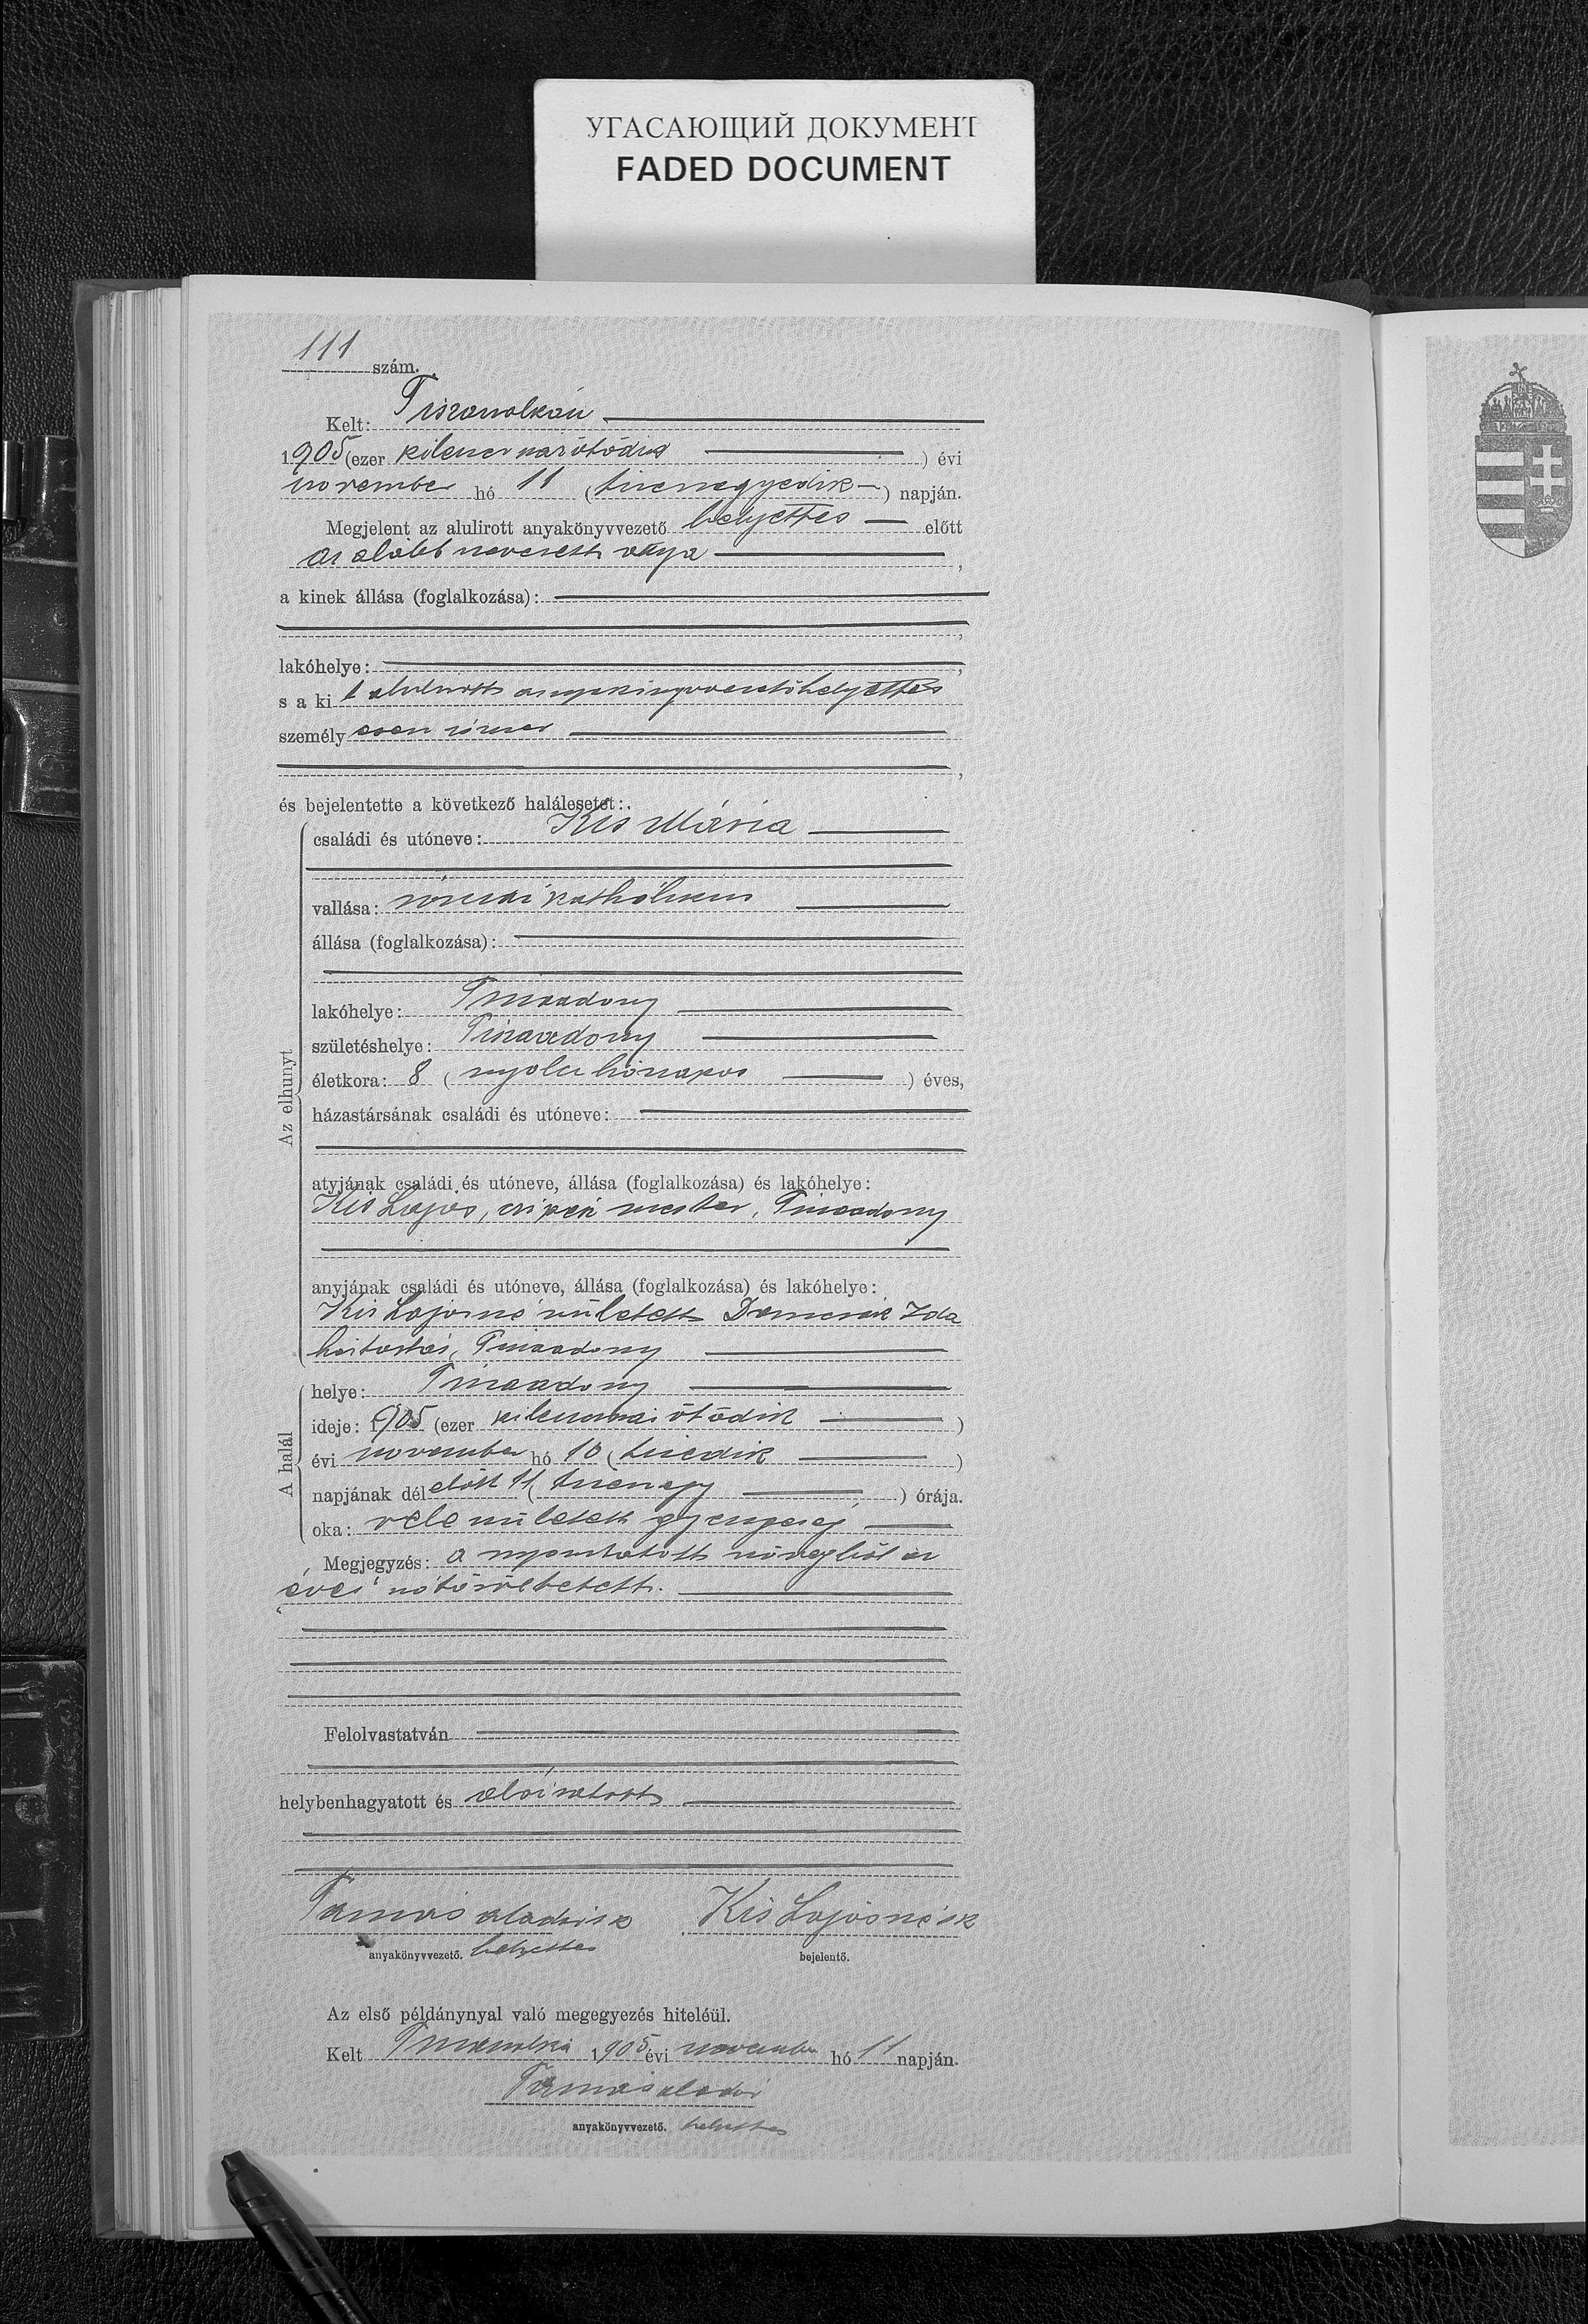 УГАСАЮЩИЙ ДОКУМЕНТ
FADED DOCUMENT
111 szám.
Kelt: Tiszavalkán
1905 (ezer kilencszázötödik ) évi
november hó 11 (tizenegyedik ) napján.
Megjelent az alulirott anyakönyvvezető helyettes előtt
az alább nevezett anyja ,
a kinek állása (foglalkozása):
,
lakóhelye: ,
s a kit alulirott anyakönyvvezetőhelyettes
személyesen ismer
,
és bejelentette a következő halálesetet:
Az elhunyt
családi és utóneve: Kis Mária
vallása: római katholikus
állása (foglalkozása):
lakóhelye: Tiszadorogma
születéshelye:
életkora: 8 ( nyolc hónapos ) éves,
házastársának családi és utóneve:
atyjának családi és utóneve, állása (foglalkozása) és lakóhelye:
Kis Lajos, mester,
anyjának családi és utóneve, állása (foglalkozása) és lakóhelye:
Kis Lajosné született Ida
háztartás,
A halál
helye:
ideje: 1905 (ezer kilencszázötödik )
évi november hó 10 (tizedik )
napjának délelőtt 11 (tizenegy ) órája.
oka: vele született gyengeség
Megjegyzés: a nyomtatott szövegből az
„éves" szó töröltetett.
Felolvastatván
helybenhagyatott és aláíratott
Tamás Aladár sk Kis Lajosné sk
anyakönyvvezető. helyettes bejelentő.
Az első példánynyal való megegyezés hiteléül.
Kelt Tiszavalkán 1905 évi november hó 11 napján.
Tamás Aladár
anyakönyvvezető. helyettes